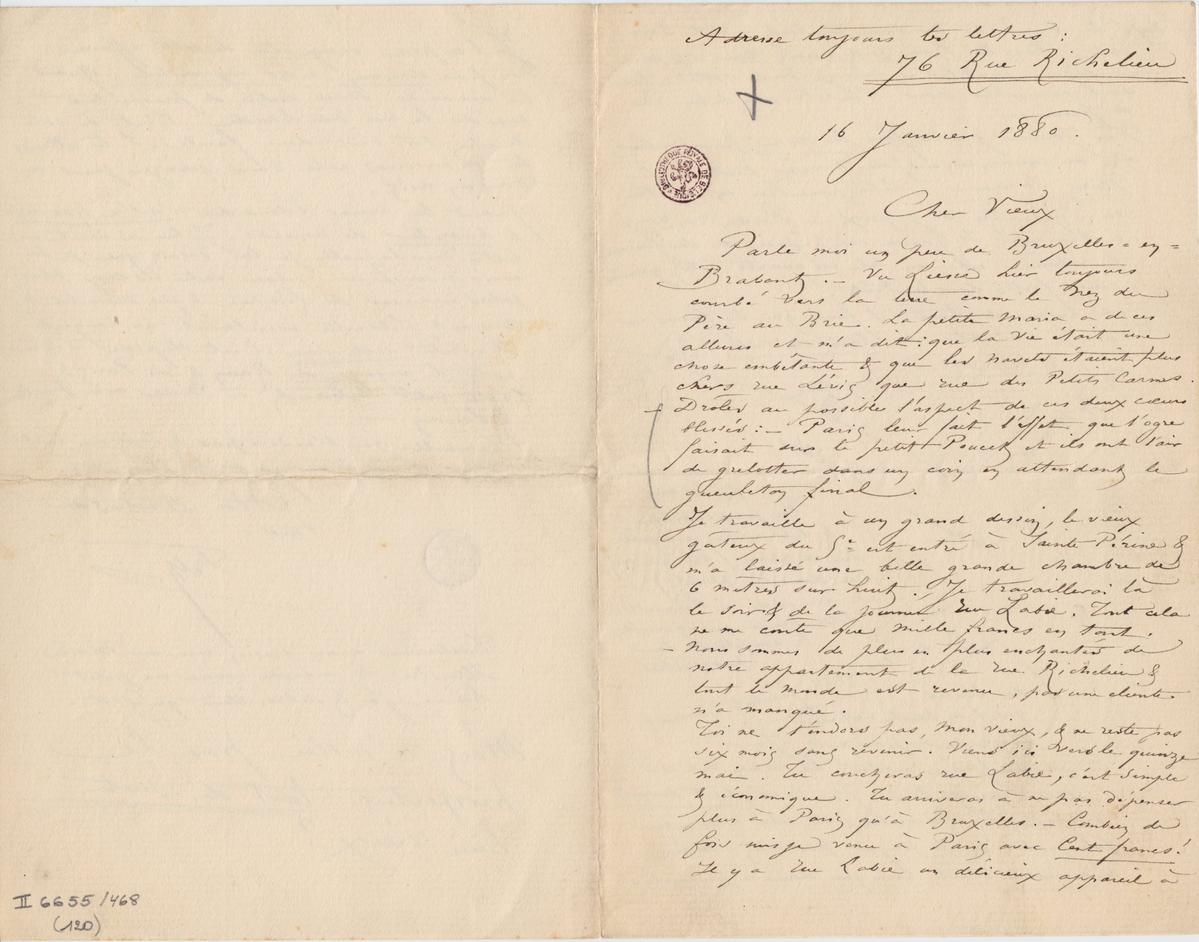 Adresse toujours tes lettres :
76 Rue Richelieu
16 Janvier 1880.
BIBLIOTHÈQUE ROYALE DE BELGIQUE
Cher Vieux
Parle moi un peu de Bruxelles-en-
Brabant. — Vu Liesse hier toujours
courbé vers la terre comme le Nez du
Père au Brie. La petite Maria a de ces
allures et m'a dit : que la vie était une
chose embêtante & que les navets étaient plus
chers rue Lévis que rue des Petits Carmes.
Drôles au possible l'aspect de ces deux cœurs
blessés : — Paris leur fait l'effet que l'ogre
faisait sur le petit Poucet et ils ont l'air
de grelotter dans un coin en attendant le
gueuleton final.
Je travaille à un grand dessin, le vieux
gâteux du 5e est entré à Sainte Périne &
m'a laissé une belle grande chambre de
6 mètres sur huit. Je travaillerai là
le soir & de la journée rue Labie. Tout cela
ne me coute que mille francs en tout.
— Nous sommes de plus en plus enchantés de
notre appartement de la rue Richelieu &
tout le monde est revenu, pas une cliente
n'a manqué.
Toi ne t'endors pas, mon vieux, & ne reste pas
six mois sans revenir. Viens ici vers le quinze
mai. Tu coucheras rue Labie, c'est simple
& économique. Tu arriveras à ne pas dépenser
plus à Paris qu'à Bruxelles. — Combien de
fois suis je venu à Paris avec Cent francs !
Il y a rue Labie un délicieux appareil à
II 6655/468
(120)